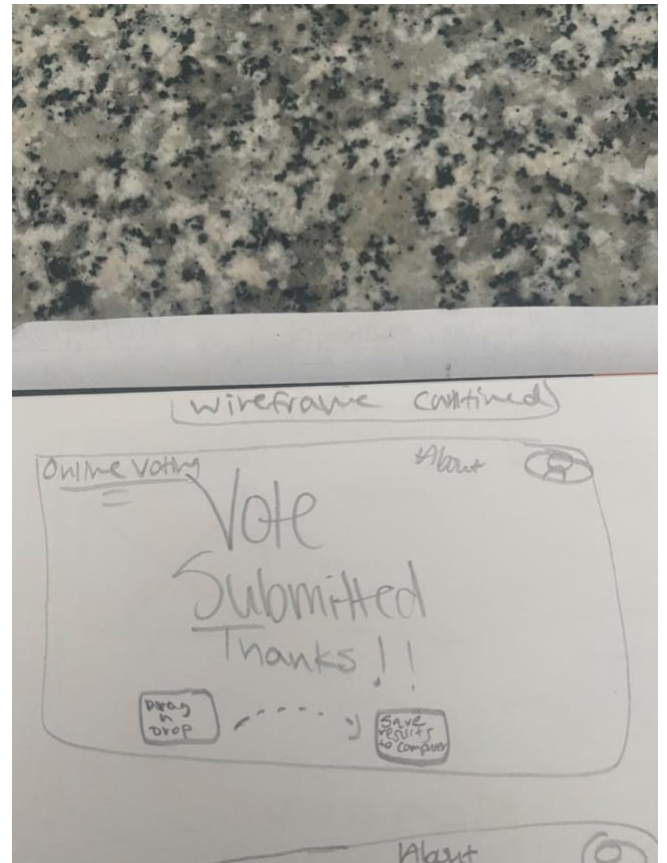 Wireframe Continued
Online Voting
About
Vote
Submitted
Thanks!!
Drag
n
Drop
Save
results
to computer
About